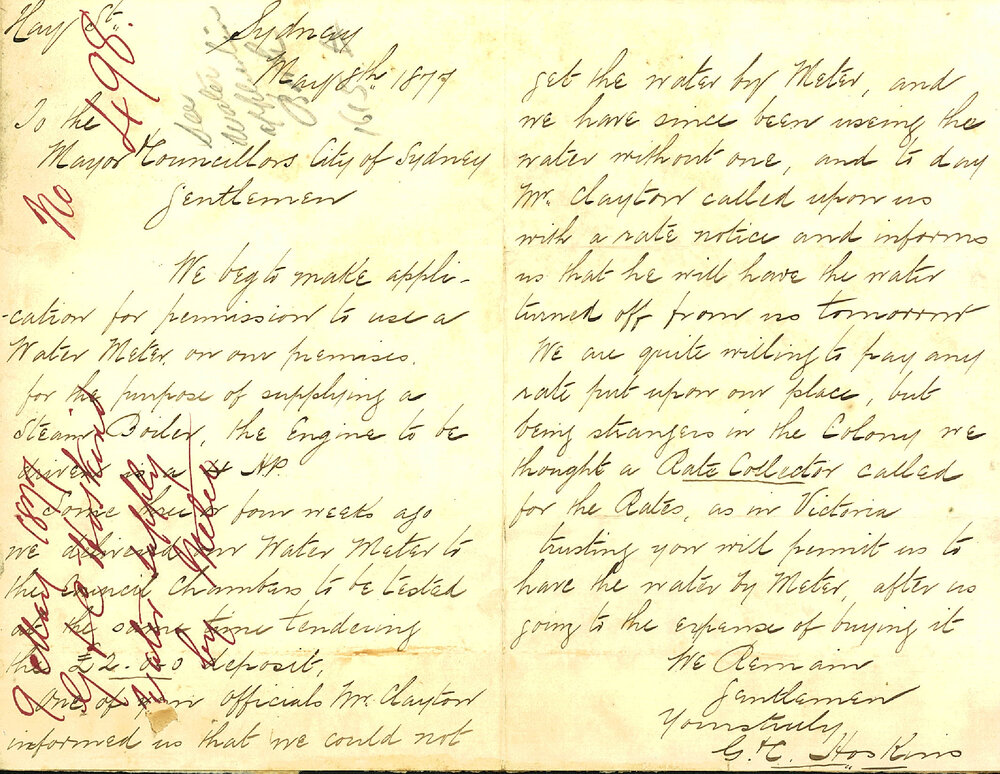 Hay St. Sydney
May 8th. 1877
To the
Mayor & Councillors City of Sydney
Gentlemen
We beg to make appli-
-cation for permission to use a
Water Meter, on our premises,
for the purpose of supplying a
Steam Boiler, the Engine to be
driven is a 4 HP.
Some three or four weeks ago
we delivered our Water Meter to
the Council Chambers to be tested
at the same time tendering
the £2.0.0 deposit,
One of your officials Mr. Clayton
informed us that we could not
get the water by Meter, and
we have since been useing the
water without one, and to day
Mr. Clayton called upon us
with a rate notice and informs
us that he will have the water
turned off from us tomorrow
We are quite willing to pay any
rate put upon our place, but
being strangers in the Colony we
thought a Rate Collector called
for the Rates, as in Victoria
trusting you will permit us to
have the water by Meter, after us
going to the expense of buying it
We Remain
Gentlemen
Yours truly
G. & C. Hoskins
No 498.
See
1615
9 May 1877
G & C Hoskins
Water supply
by Meter